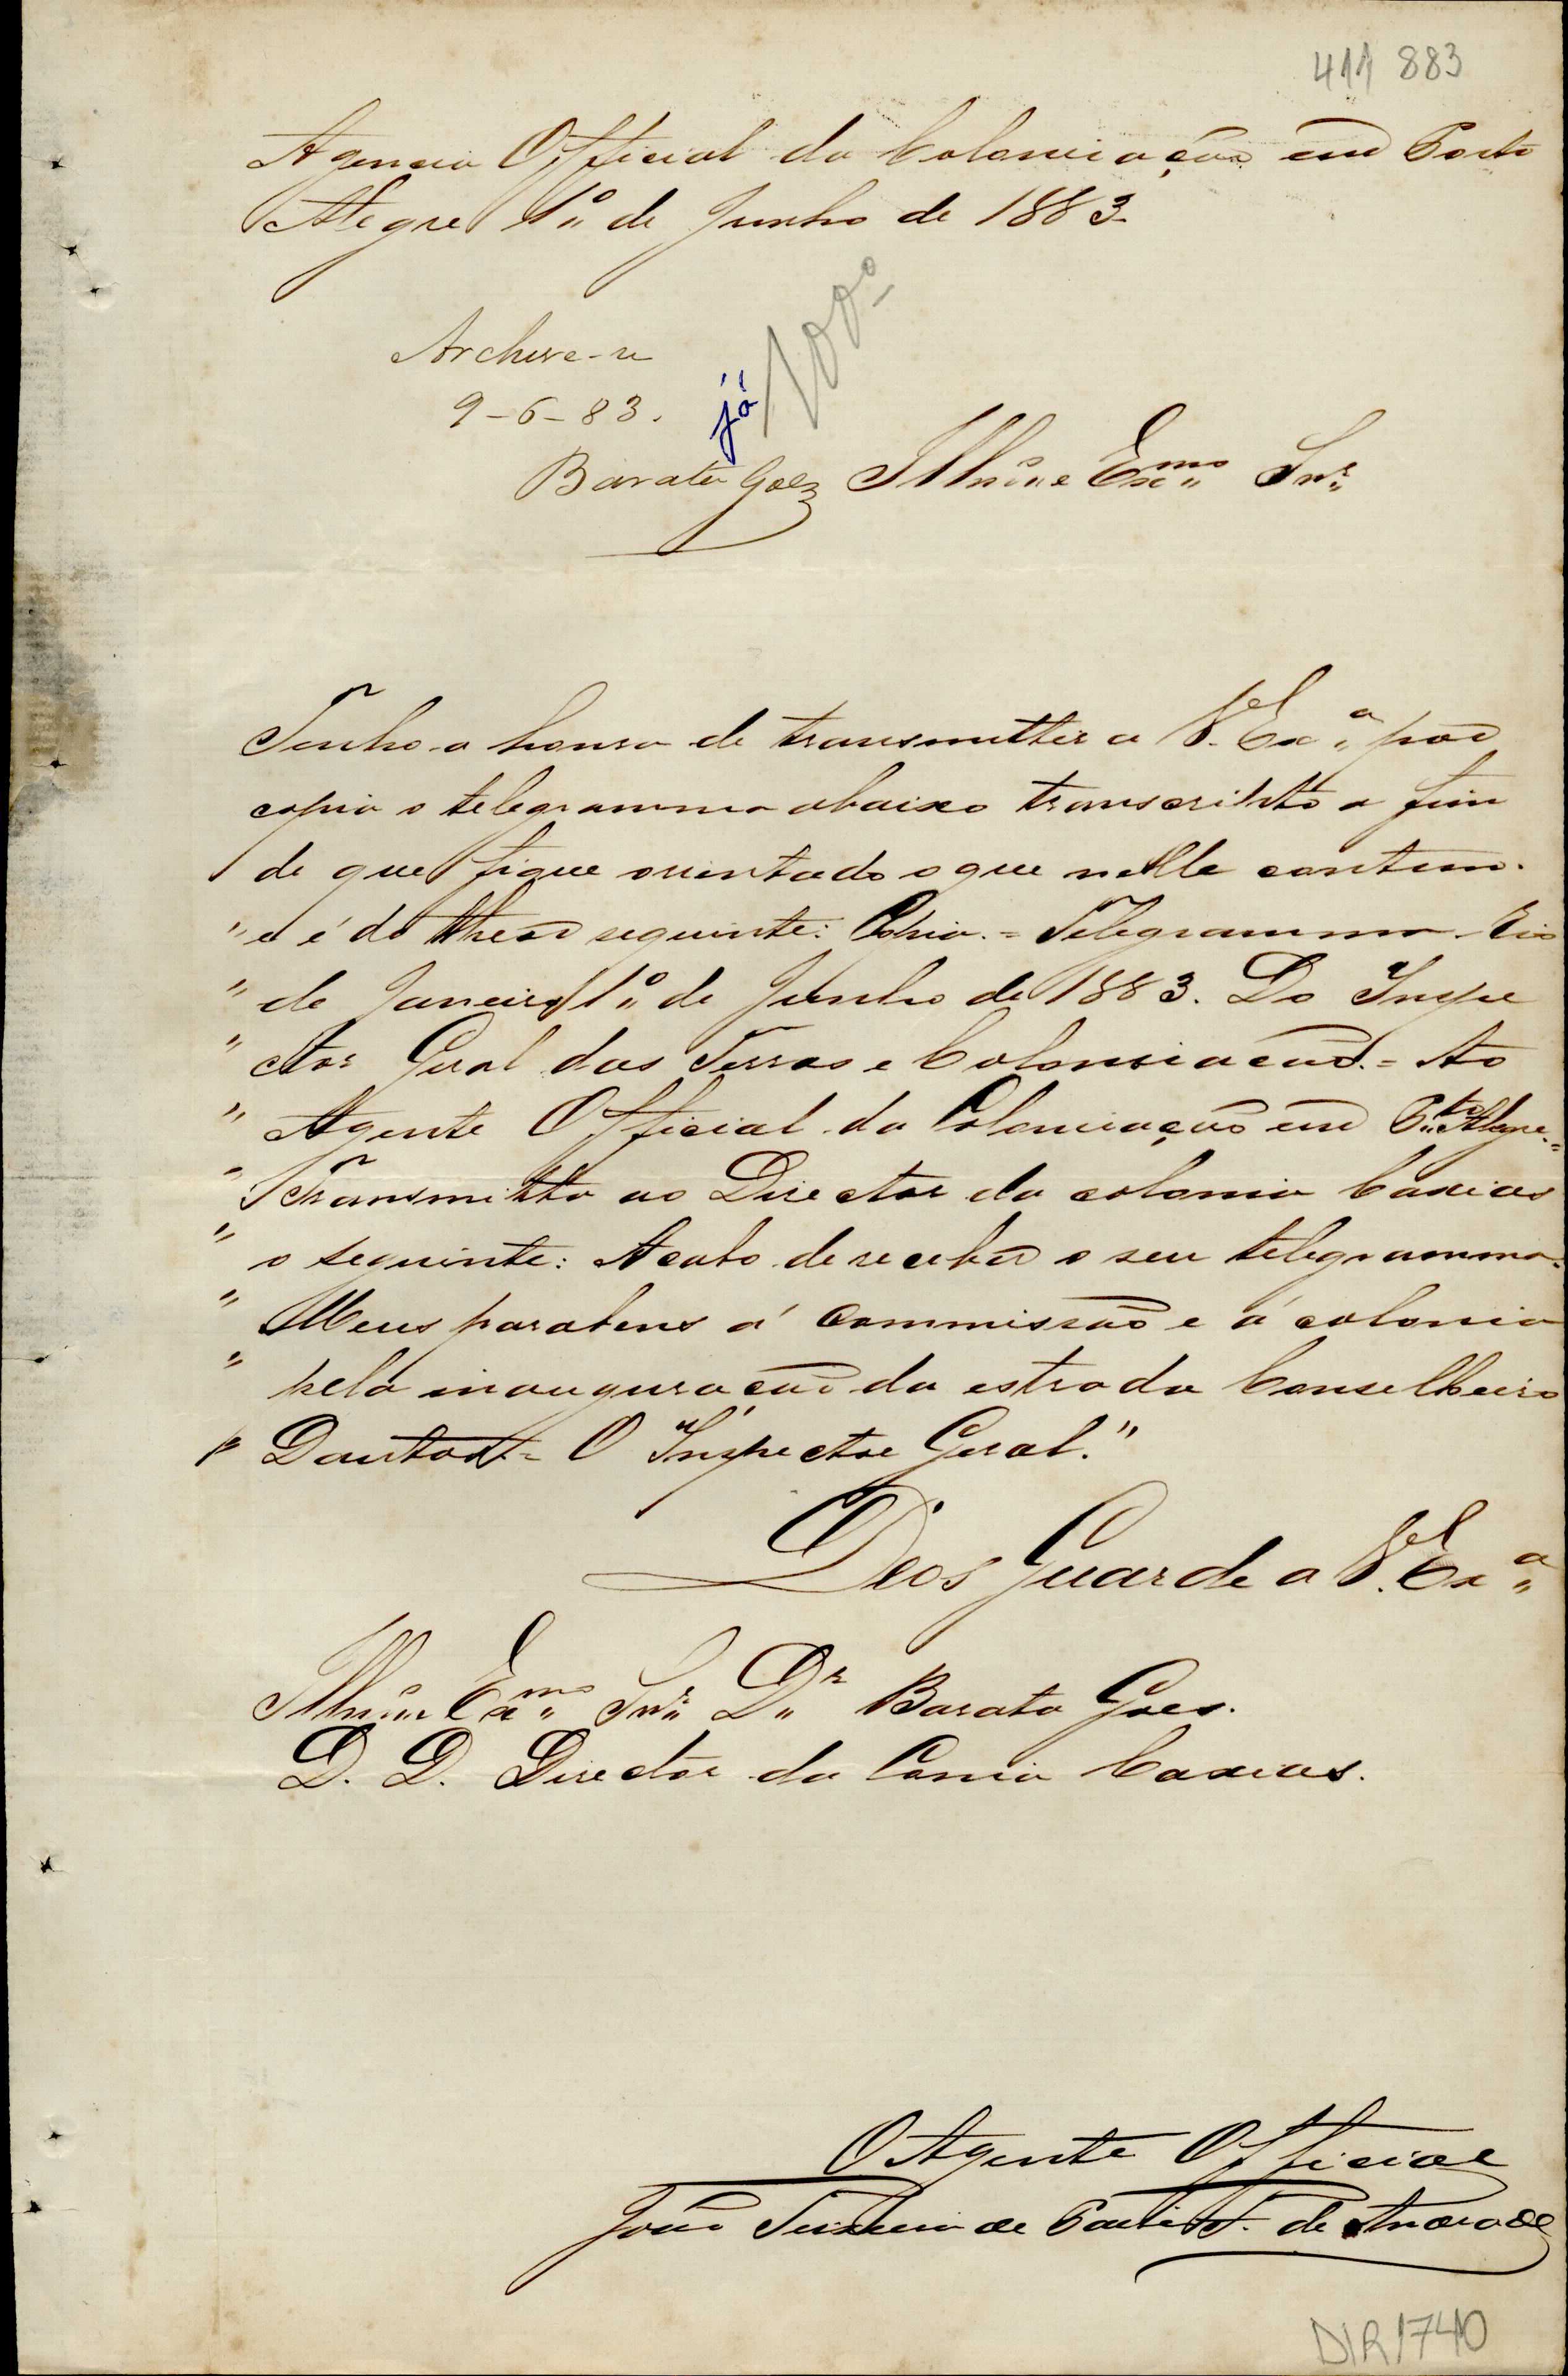 411 883
Agencia Official da Colonisação em Porto
Alegre 1º de Junho de 1883
Archive-se
9-6-83.
já
Barata Goes Illmº e Exmº Snr
Tenho a honra de transmitter a V. Exª por
copia o telegramma abaixo transcripto a fim
de que fique orientado o que nelle contem.
" e é do theor seguinte: Copia. = Telegramma. Rio
" de Janeiro 1º de Junho de 1883. Do Inspe
" ctor Geral das Terras e Colonisação. = Ao
" Agente Official da Colonisação em Pto Alegre. =
" Transmitta ao Director da colonia Caxias
" o seguinte: Acabo de receber o seu telegramma.
" Meus parabens á Commissão e á colonia
" pela inauguração da estrada Conselheiro
" Dantas = O Inspector Geral."
Deos Guarde a V. Exª
Illmº e Exmº Snr Dr Barata Goes.
D. D. Director da Conia Caxias.
O Agente Official
João de Andrade
DIR1740